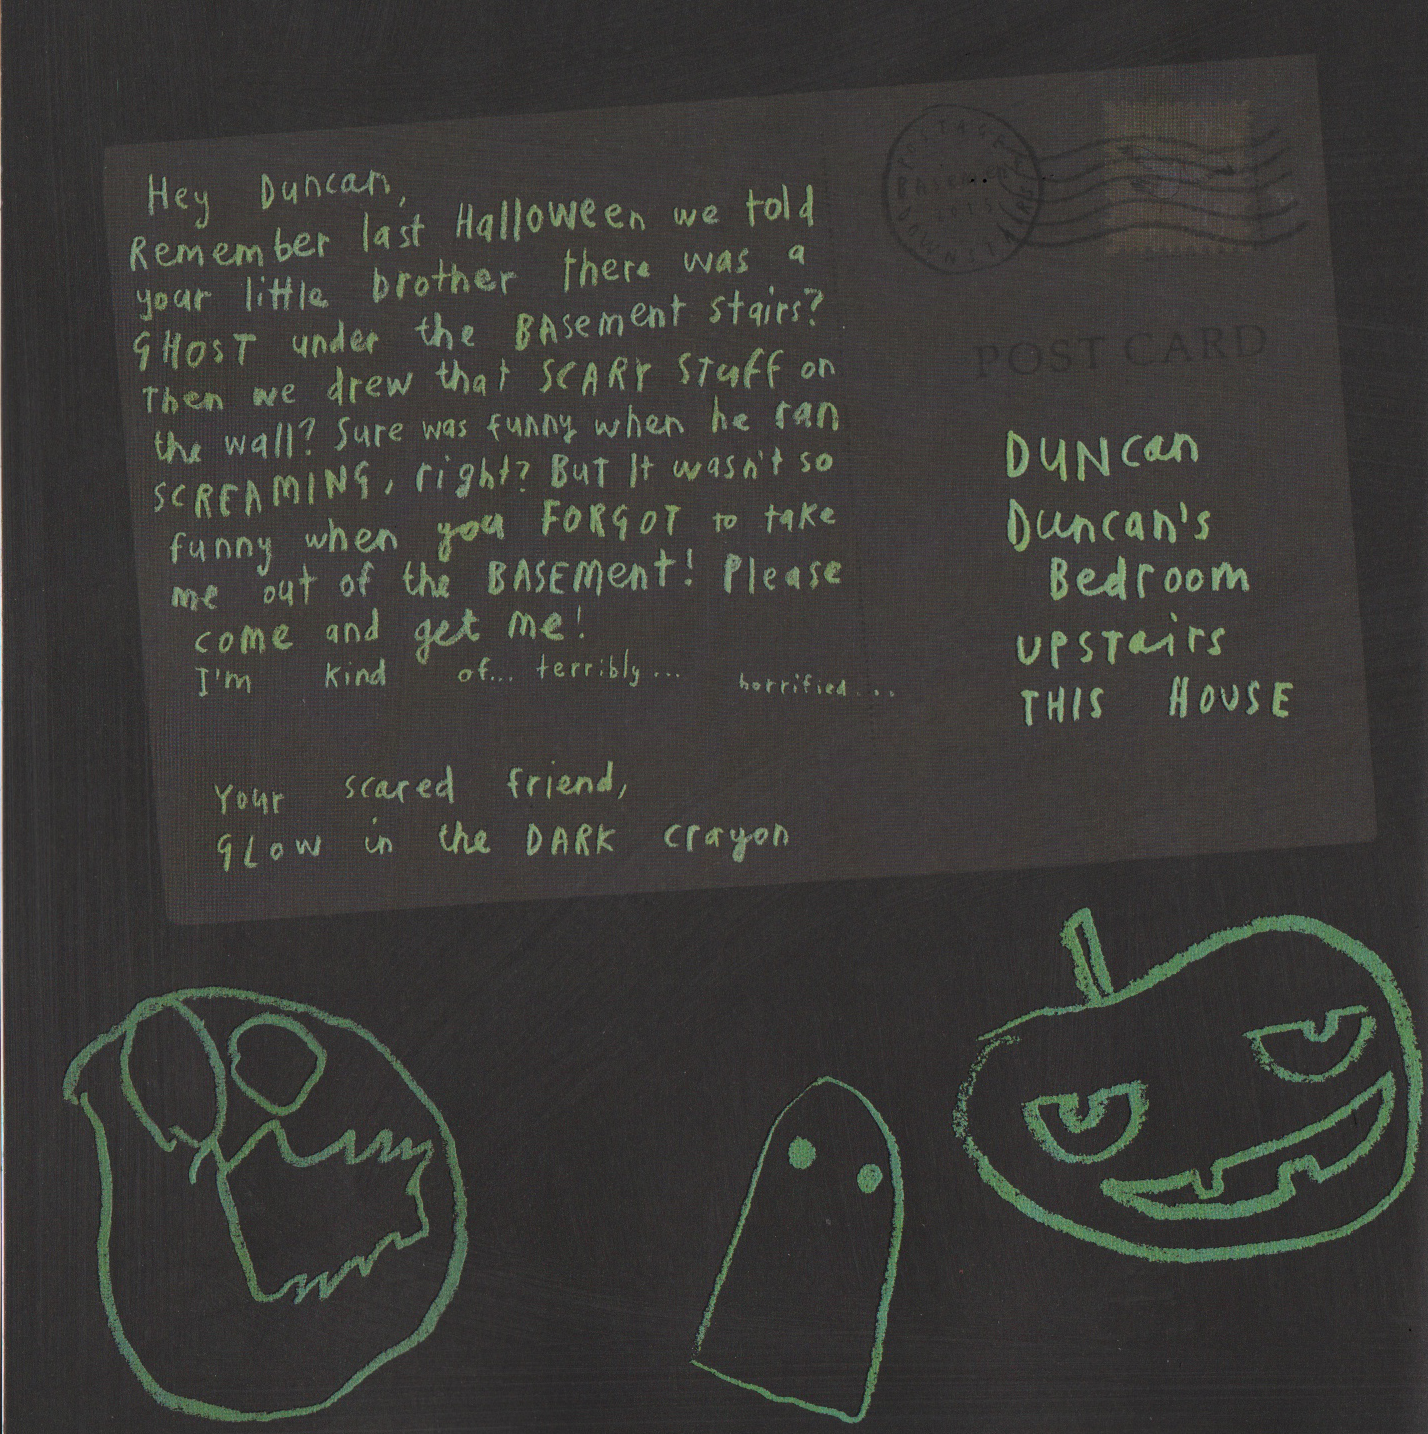 Hey Duncan,
Remember last Halloween we told
your little brother there was a
GHOST under the BAsement stairs?
Then we drew that SCARY STuff on
the wall? Sure was funny when he ran
SCREAMING, right? BuT It wasn't so
funny when you FORGOT to take
me out of the BASEMent! Please
come and get me!
I'm kind of... terribly... horrified....
Your scared friend,
GLOW in the DARK crayon
POSTAGE
BASEMENT
2015
DOWNSTAIRS
POST CARD
DUNcan
Duncan's
Bedroom
UPSTairs
THIS HOUSE